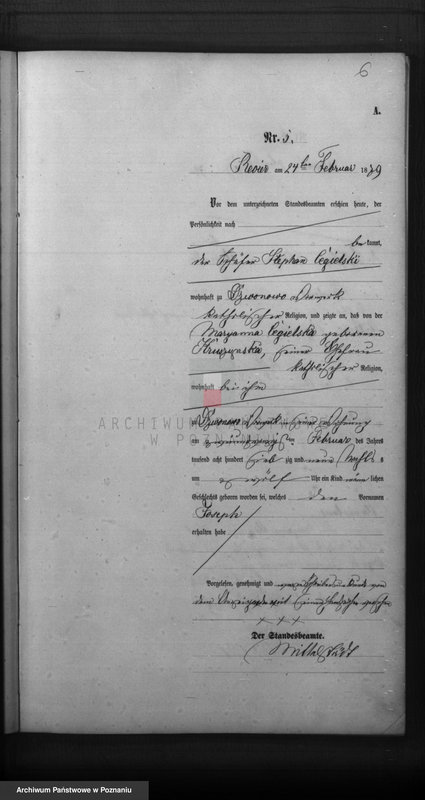 6
A.
Nr. 5.
am 24ten Februar 1879
Vor dem unterzeichneten Standesbeamten erschien heute, der
Persönlichkeit nach
bekannt,
der Schäfer Stephan Cegielski
wohnhaft zu Dzwonowo Vorwerk
katholischer Religion, und zeigte an, daß von der
Maryanna Cegielska geborenen
seiner Ehefrau
katholischer Religion,
wohnhaft bei ihm
ARCHIWUM
W P
zu Dzwonowo Vorwerk in seiner Wohnung
am Februar des Jahres
tausend acht hundert siebzig und neun
um zwölf Uhr ein Kind männlichen
Geschlechts geboren worden sei, welches den Vornamen
Joseph
erhalten habe
Vorgelesen, genehmigt und
dem
+ + +
Der Standesbeamte.
Archiwum Państwowe w Poznaniu